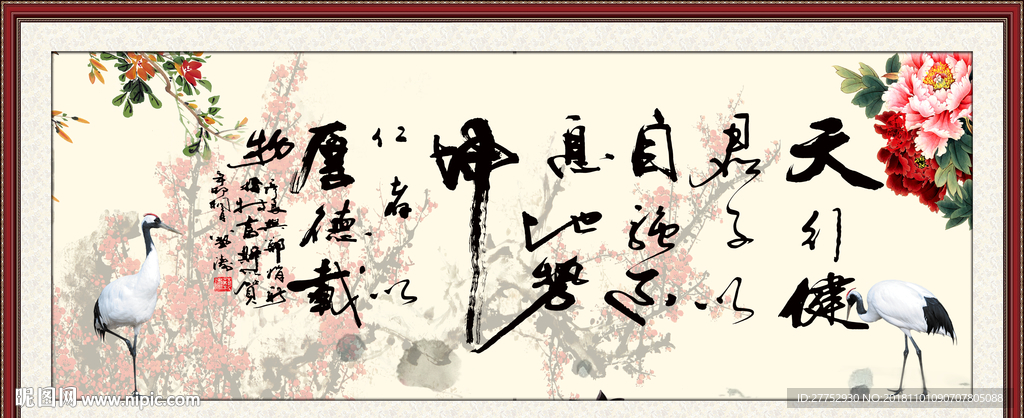 天行健
君子以
自强不
息地势
坤
仁者以
厚德载
物
昵图网 www.nipic.com
ID:27752930 NO:20181101090707805088